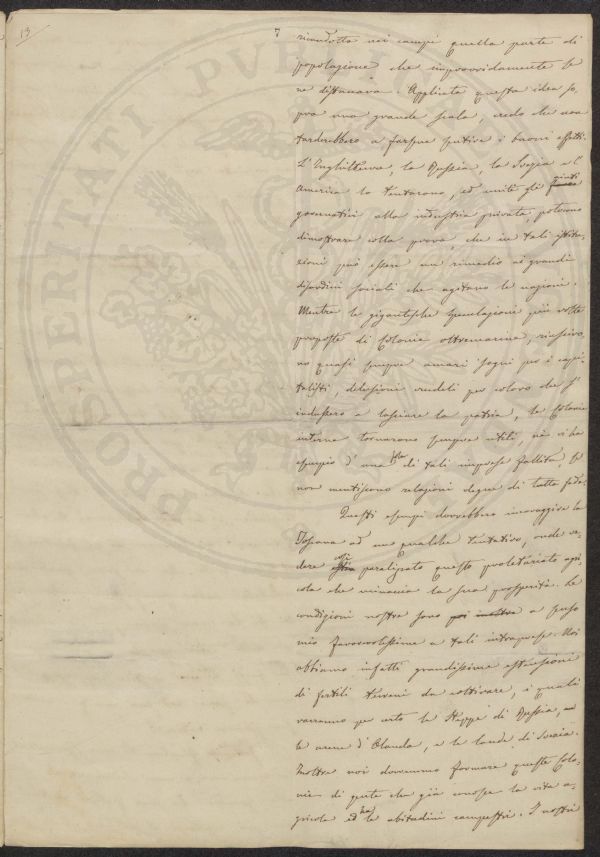 13
7
ricondotta nei campi quella parte di
popolazione che improvvidamente se
ne distaccava. Applicata questa idea so,
pra una grande scala, credo che non
tarderebbero a farsene sentire i buoni effetti.
L'Inghilterra, la Russia, la Svezia e l'
America lo tentarono, ed uniti gli ajuti
governativi alla industria privata, poterono
dimostrare colla prova, che in tali istitu-
zioni può essere un rimedio ai grandi
disordini sociali che agitano le nazioni.
Mentre le gigantesche speculazioni più volte
proposte di Colonie oltremarine, riusciro,
no quasi sempre amari sogni per i capi-
talisti, delusioni crudeli per coloro che s'
indussero a lasciare la patria, le Colonie
interne tornarono sempre utili, nè vi ha
esempio d'una sola di tali imprese fallita, se
non mentiscono relazioni degne di tutta fede.
Questi esempi dovrebbero incoraggire la
Toscana ad un qualche tentativo, onde ve-
dere così paralizzato questo proletariato agri-
cola che minaccia la sua prosperità. Le
condizioni nostre sono poi inoltre a senso
mio favorevolissime a tali intraprese. Noi
abbiamo infatti grandissime estensioni
di fertili terreni da coltivare, i quali
varranno per certo le Steppe di Russia,
le arene d'Olanda, e le lande di Svezia.
Inoltre noi dovremmo formare queste Colo-
nie di gente che già conosce la vita a-
gricola ed ha le abitudini campestri. I nostri